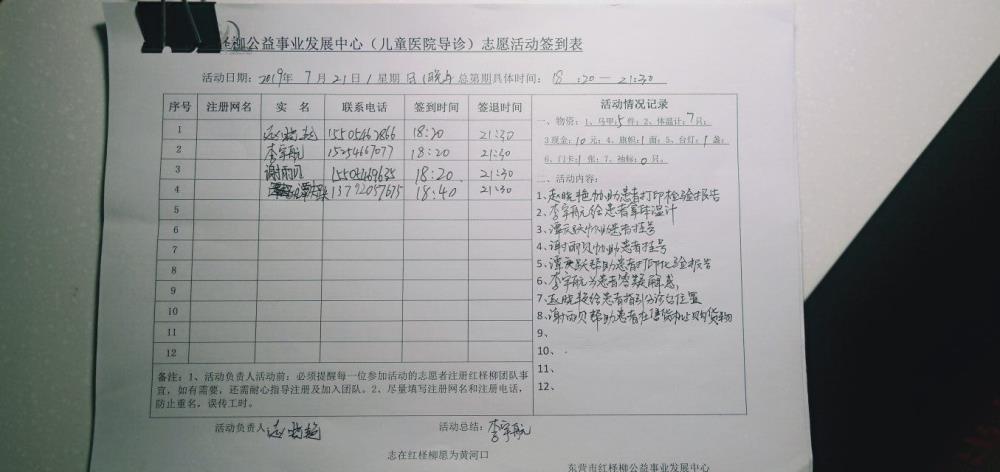 柳公益事业发展中心（儿童医院导诊）志愿活动签到表
活动日期：2019年 7月21日 星期 日（晚上 总第期具体时间：18:20—21:30
序号 注册网名 实 名 联系电话 签到时间 签退时间 活动情况记录
1 15505462866 18:20 21:30
2 李宇航 15254667077 18:20 21:30
3 谢雨贝 18:20 21:30
4 13792057615 18:40 21:30
5
6
7
8
9
10
11
12
一、物资：1、马甲：5件；2、体温计：7只；
3现金：10元；4、旗帜：1面；5、台灯：1盏；
6、门卡：1张；7、袖标：0只。
二、活动内容：
1、赵晓艳协助患者打印检验报告
2、李宇航给患者拿体温计
3、谭庆跃协助患者挂号
4、谢雨贝协助患者挂号
5、谭庆跃帮助患者打印化验报告
6、李宇航为患者答疑解惑，
7、赵晓艳给患者指引分诊台位置
8、谢雨贝帮助患者在售货机上购货物
9、
10、
11、
12、
备注：1、活动负责人活动前：必须提醒每一位参加活动的志愿者注册红柽柳团队事
宜，如有需要，还需耐心指导注册及加入团队。2、尽量填写注册网名和注册电话，
防止重名，误传工时。
活动负责人：赵晓艳 活动总结：李宇航
志在红柽柳愿为黄河口
东营市红柽柳公益事业发展中心